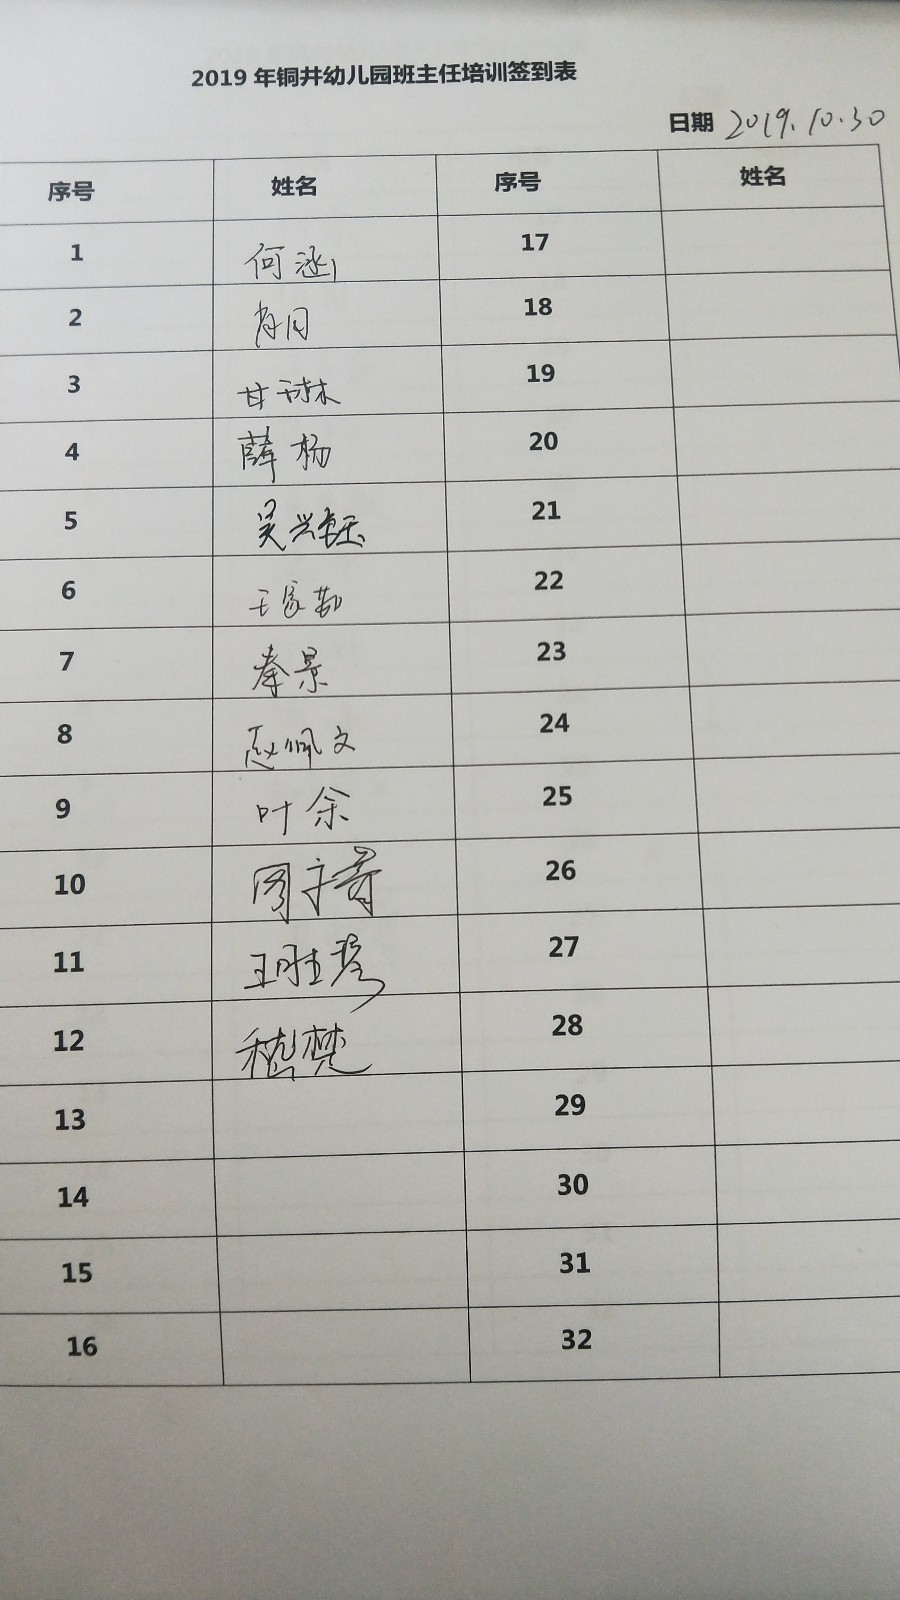 2019 年铜井幼儿园班主任培训签到表
日期 2019.10.30
序号 姓名 序号 姓名
1 何涵 17
2 肖月 18
3 甘琳 19
4 薛杨 20
5 吴兴钰 21
6 王家勤 22
7 秦景 23
8 赵佩文 24
9 叶余 25
10 周 26
11 王胜琴 27
12 嵇楚 28
13 29
14 30
15 31
16 32